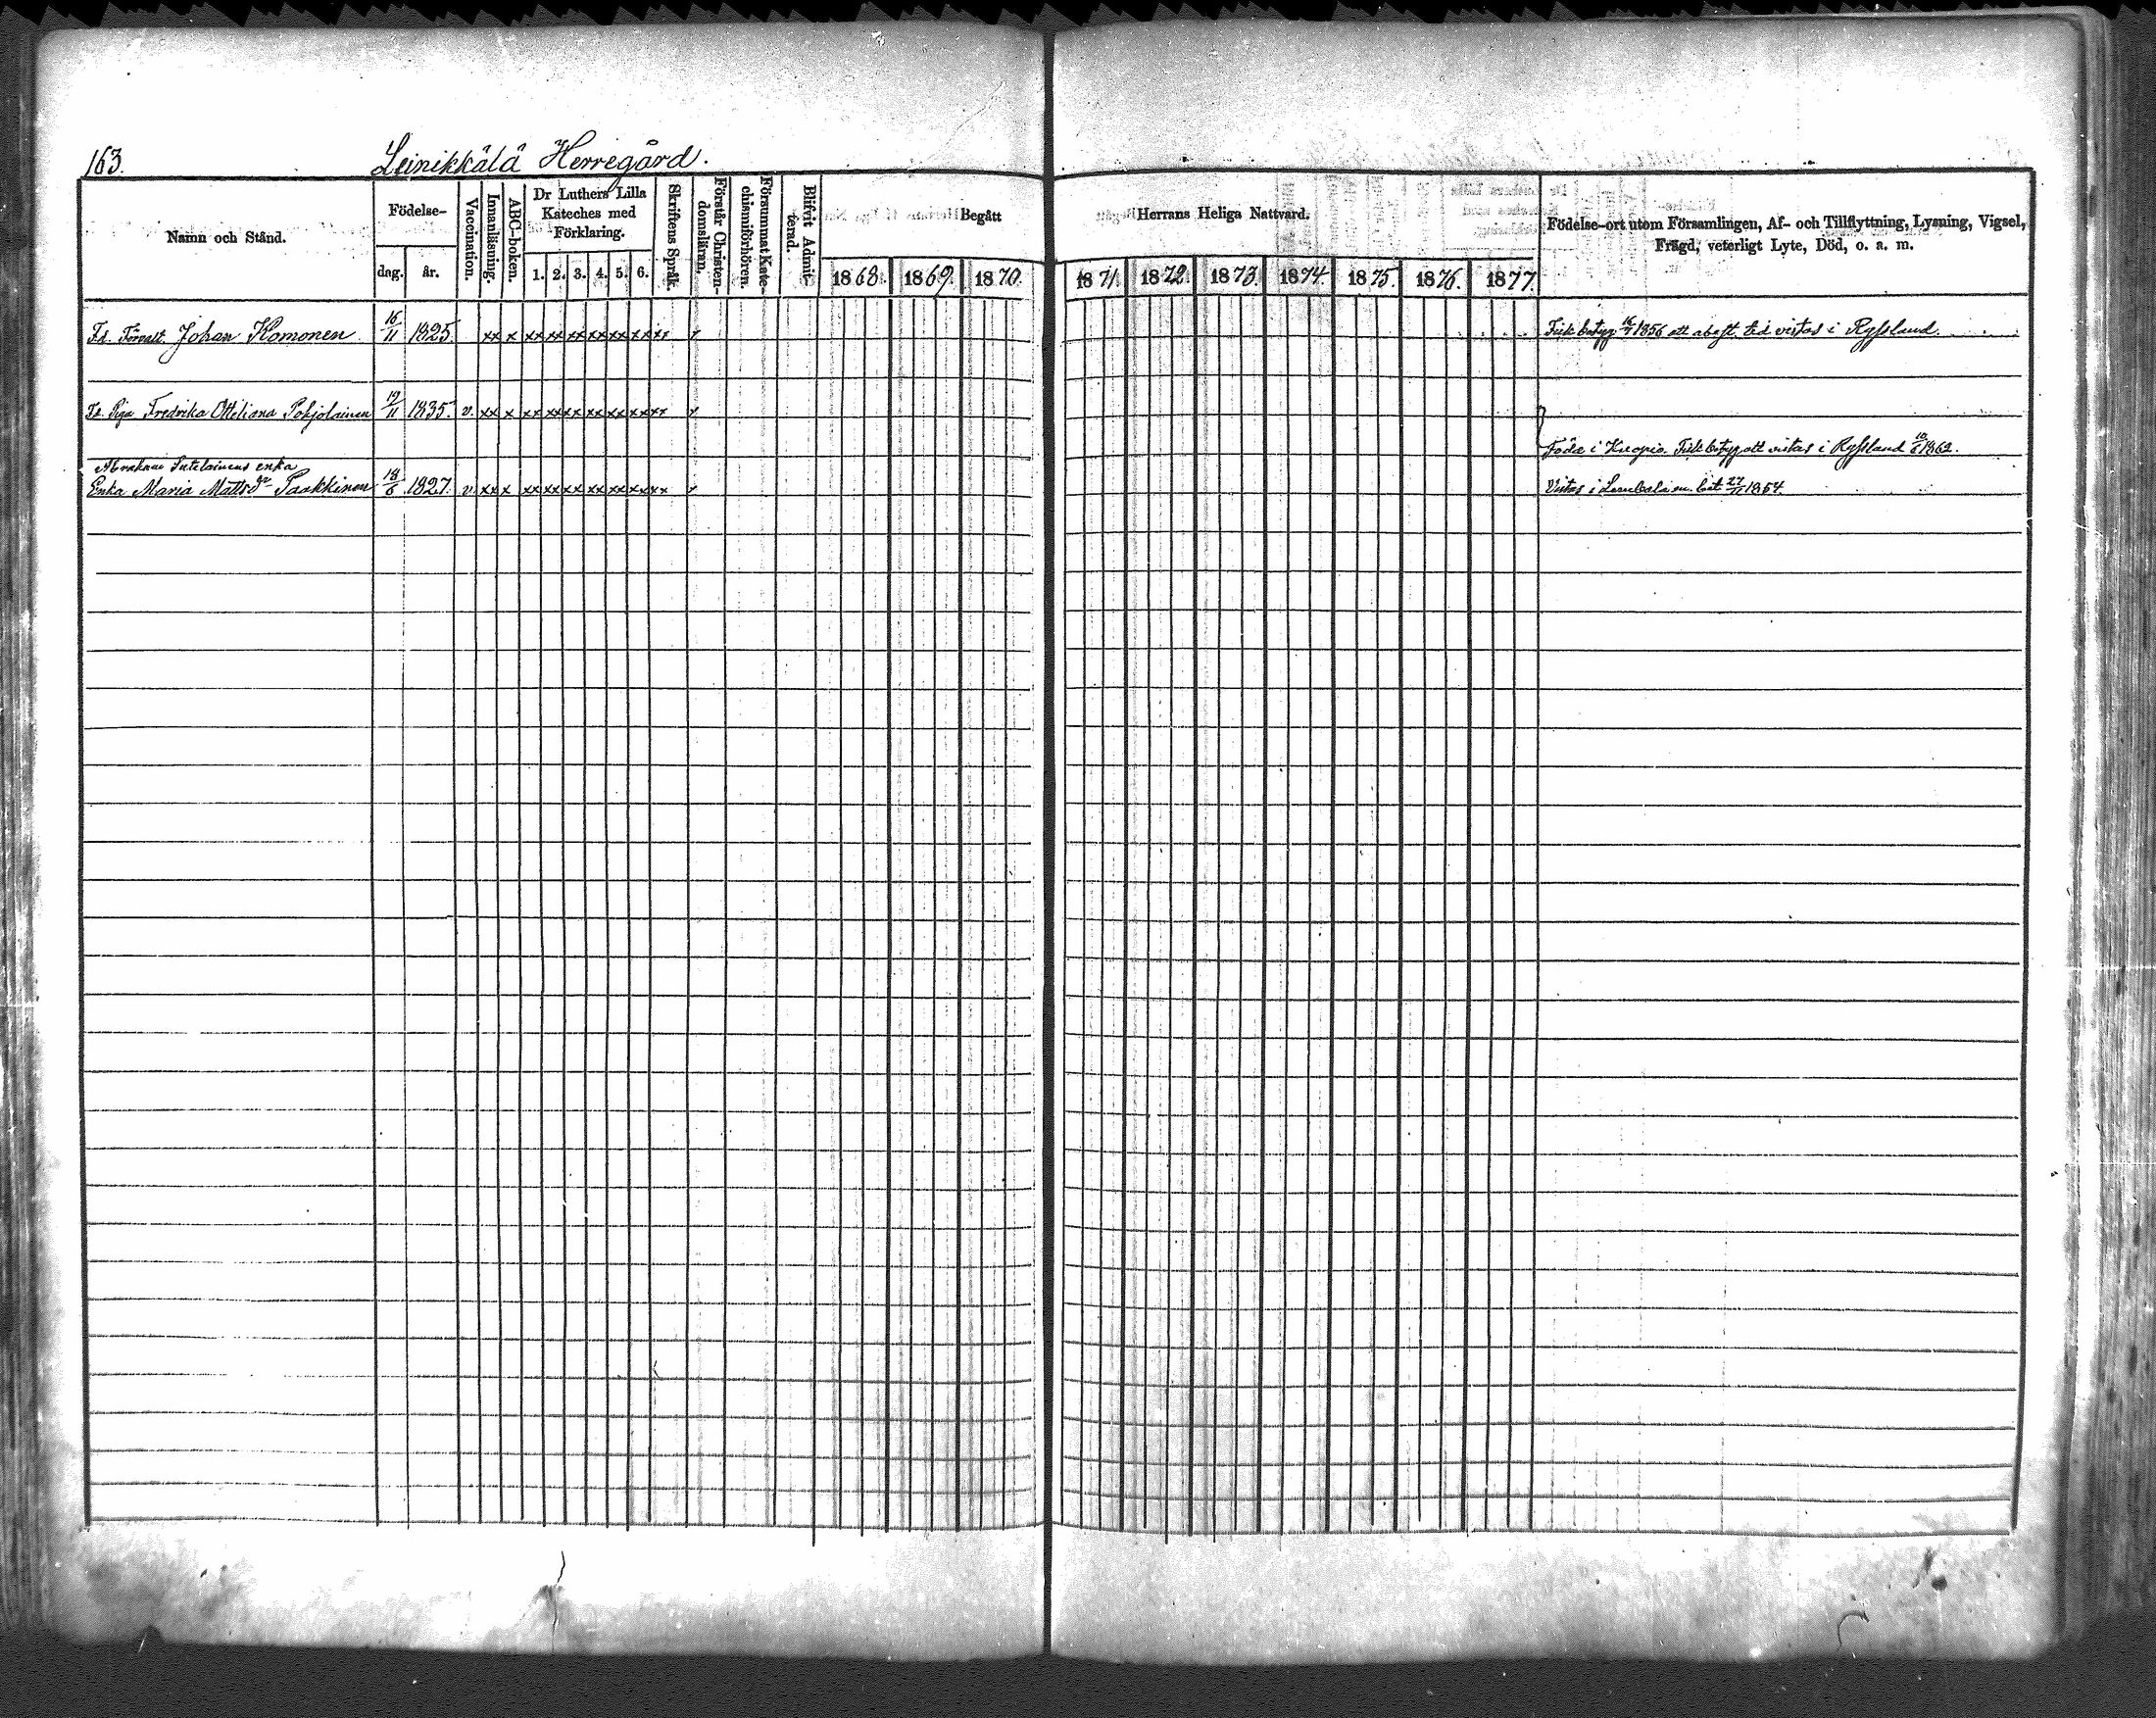 163.
Leinikkälä Herregård.
Namn och Stånd.
Födelse-
dag.
år.
Vaccination.
Innanläsning.
ABC-boken.
Dr Luthers Lilla
Kateches med
Förklaring.
1. 2. 3. 4. 5. 6.
Skriftens Språk.
Förstår Christen-
domsläran.
Försummat Kate-
chismiförhören.
Blifvit Admit-
terad.
Begått
1868. 1869. 1870.
Herrans Heliga Nattvard.
1871. 1872. 1873. 1874. 1875. 1876. 1877.
Födelse-ort utom Församlingen, Af- och Tillflyttning, Lysning, Vigsel,
Frägd, veterligt Lyte, Död, o. a. m.
Fd. Förvalt. Johan Komonen 16/11 1825. xx x xx xx xx xx xx xx xx x 1856 att vistas i Ryssland.
Fd. Piga Fredrika Ottiliana Pohjolainen 19/11 1835. v. xx x xx xx xx xx xx xx xx x
Född i Kuopio. att vistas i Ryssland 1862.
enka
Enka Maria Mattsdr Paakkinen 18/6 1827. v. xx x xx xx xx xx xx xx xx x Vistas i 1864.